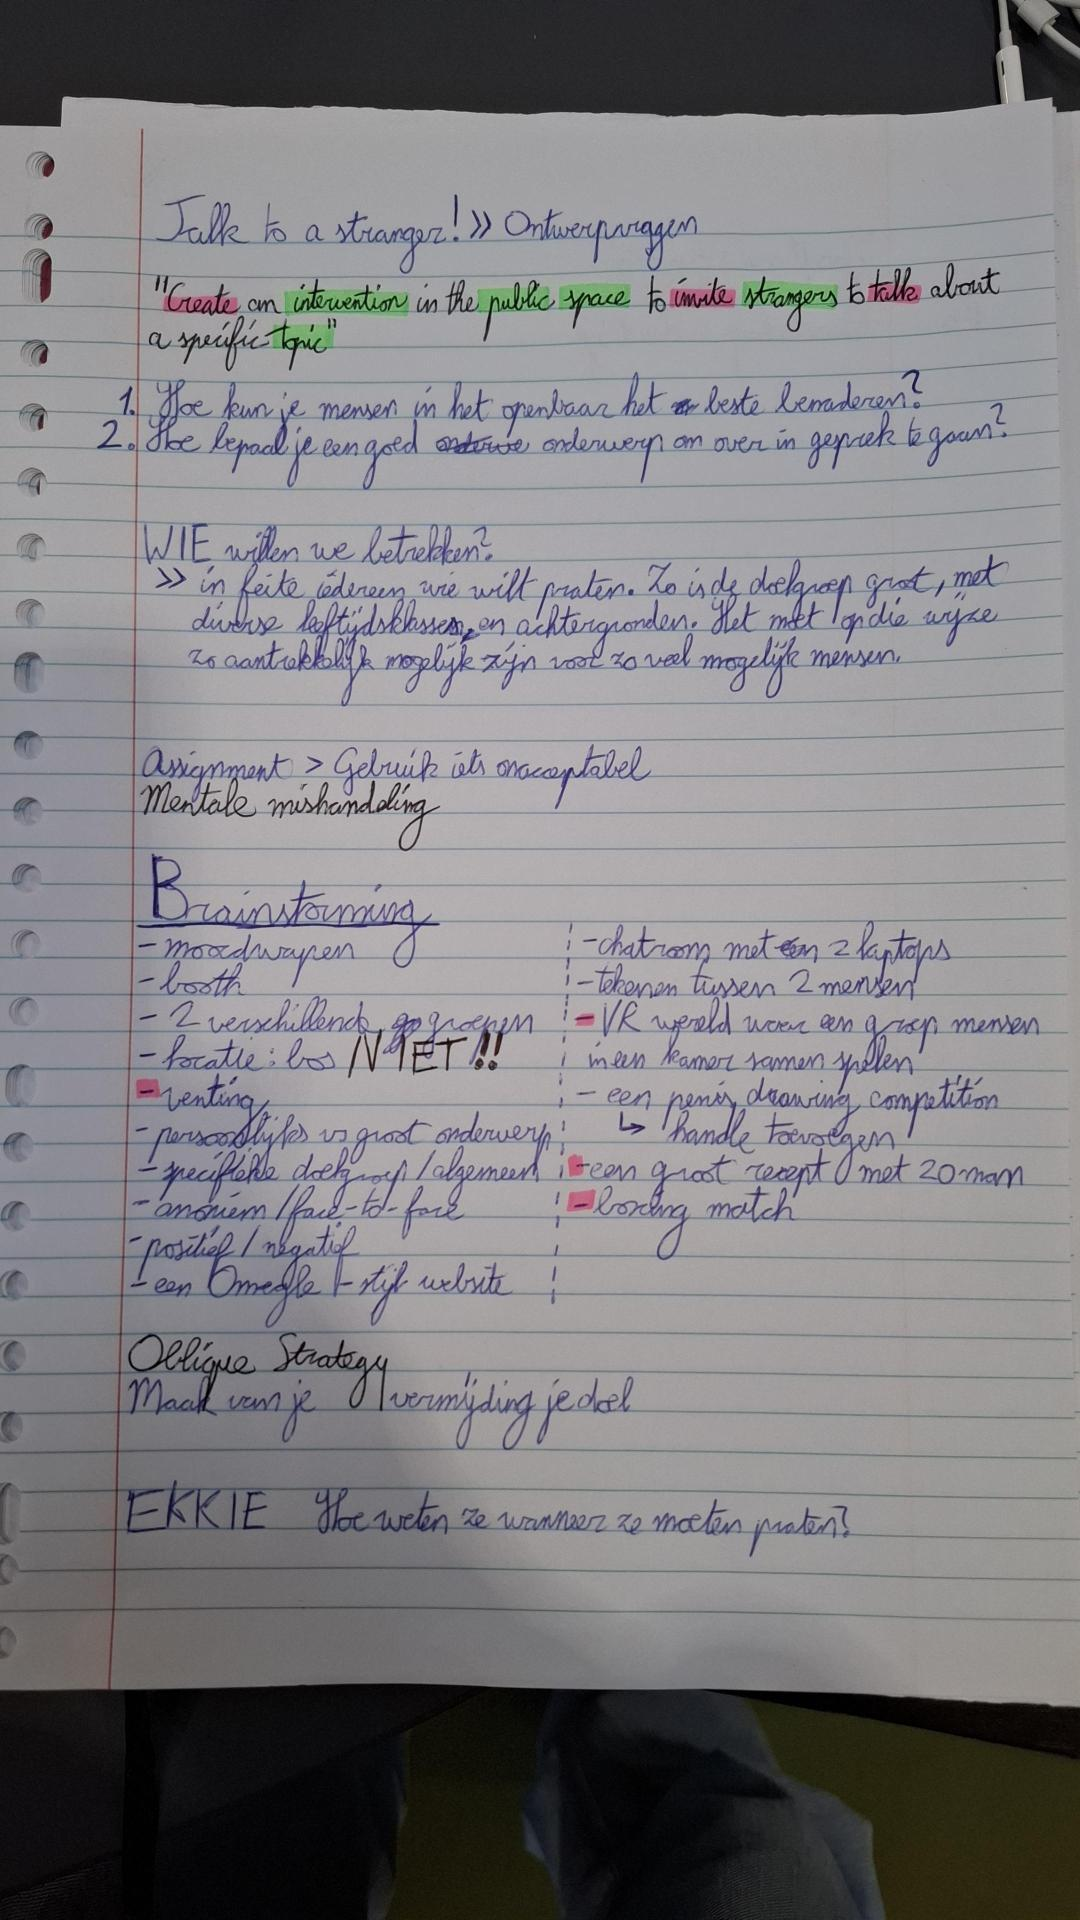 Talk to a stranger! >> Ontwerpvragen
"Create an intervention in the public space to invite strangers to talk about
a specific topic"
1. Hoe kun je mensen in het openbaar het beste benaderen?
2. Hoe bepaal je een goed onderwe onderwerp om over in gesprek te gaan?
WIE willen we betrekken?
>> in feite iedereen wie wilt praten. Zo is de doelgroep groot, met
diverse leeftijdsklassen, en achtergronden. Het met op die wijze
zo aantrekkelijk mogelijk zijn voor zo veel mogelijk mensen.
Assignment > Gebruik iets onacceptabel
Mentale mishandeling
Brainstorming
- moordwapen
- booth
- 2 verschillende groepen
- locatie: bos NIET!!
- venting
- persoonlijks vs groot onderwerp
- specifieke doelgroep / algemeen
- anoniem / face-to-face
- positief / negatief
- een Omegle-stijl website
- chatroom met een 2 laptops
- tekenen tussen 2 mensen
- VR wereld waar een groep mensen
in een kamer samen spelen
- een penis drawing competition
↳ handle toevoegen
- een groot recept met 20 man
- boxing match
Oblique Strategy
Maak van je vermijding je doel
EKKIE Hoe weten ze wanneer ze moeten praten?